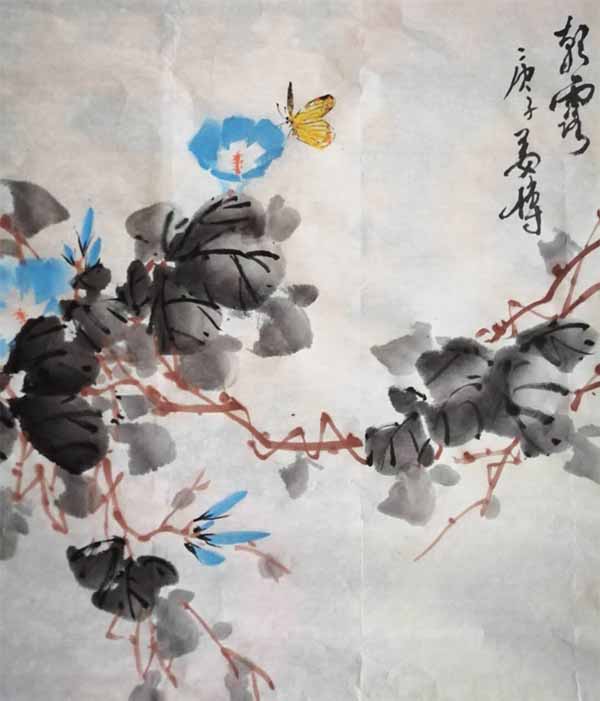 朝露
庚子